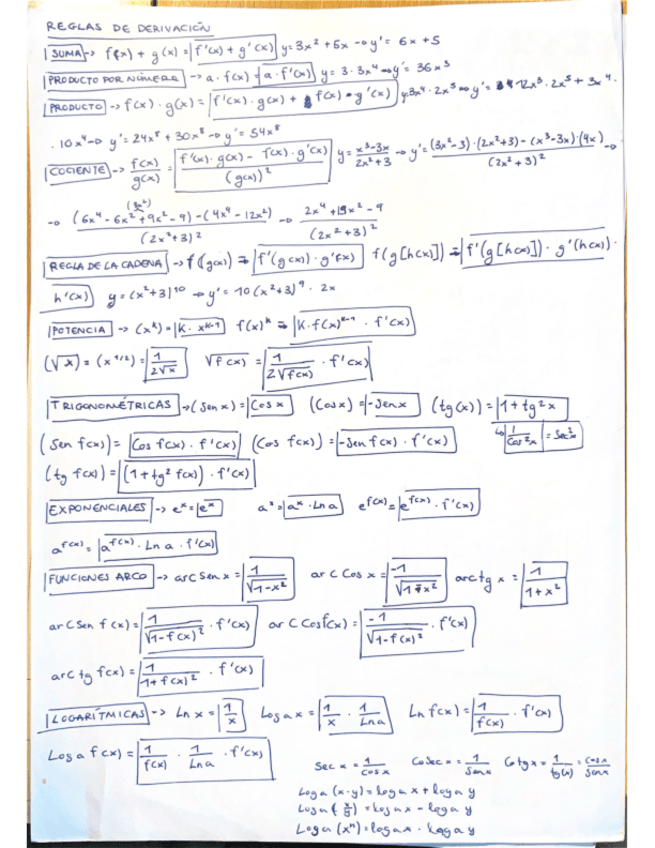 REGLAS DE DERIVACIÓN
SUMA -> f(x) + g(x) = f'(x) + g'(x) y = 3x² + 5x -> y' = 6x + 5
PRODUCTO POR NÚMERO -> a · f(x) = a · f'(x) y = 3 · 3x⁴ -> y' = 36x³
PRODUCTO -> f(x) · g(x) = f'(x) · g(x) + f(x) · g'(x) y = 3x⁴ · 2x⁵ -> y' = 12x³ · 2x⁵ + 3x⁴ ·
· 10x⁴ -> y' = 24x⁸ + 30x⁸ -> y' = 54x⁸
COCIENTE -> f(x)/g(x) = (f'(x) · g(x) - f(x) · g'(x))/(g(x))² y = (x³-3x)/(2x²+3) -> y' = ((3x²-3) · (2x²+3) - (x³-3x) · (4x))/(2x²+3)² ->
(3x²)
-> ((6x⁴ - 6x² + 9x² - 9) - (4x⁴ - 12x²))/(2x²+3)² -> (2x⁴ + 15x² - 9)/(2x²+3)²
REGLA DE LA CADENA -> f(g(x)) = f'(g(x)) · g'(x) f(g[h(x)]) = f'(g[h(x)]) · g'(h(x)) ·
h'(x) y = (x²+3)¹⁰ -> y' = 10(x²+3)⁹ · 2x
POTENCIA -> (xᵏ) = K · xᵏ⁻¹ f(x)ᵏ = K · f(x)ᵏ⁻¹ · f'(x)
(√x) = (x^1/2) = 1/(2√x) √f(x) = 1/(2√f(x)) · f'(x)
TRIGONOMÉTRICAS -> (Sen x) = Cos x (Cos x) = -Sen x (tg(x)) = 1 + tg²x
1/Cos²x = Sec²x
(Sen f(x)) = Cos f(x) · f'(x) (Cos f(x)) = -Sen f(x) · f'(x)
(tg f(x)) = (1 + tg² f(x)) · f'(x)
EXPONENCIALES -> eˣ = eˣ aˣ = aˣ · Ln a e^f(x) = e^f(x) · f'(x)
a^f(x) = a^f(x) · Ln a · f'(x)
FUNCIONES ARCO -> arC Sen x = 1/√(1-x²) arC Cos x = -1/√(1-x²) arc tg x = 1/(1+x²)
arC Sen f(x) = 1/√(1-f(x)²) · f'(x) arC Cos f(x) = -1/√(1-f(x)²) · f'(x)
arC tg f(x) = 1/(1+f(x)²) · f'(x)
LOGARÍTMICAS -> Ln x = 1/x Log a x = 1/x · 1/Ln a Ln f(x) = 1/f(x) · f'(x)
Log a f(x) = 1/f(x) · 1/Ln a · f'(x)
Sec x = 1/Cos x CoSec x = 1/Sen x Cotg x = 1/tg(x) = Cos x/Sen x
Log a (x·y) = log a x + log a y
Log a (x/y) = log a x - log a y
Log a (xⁿ) = log a x · log a y